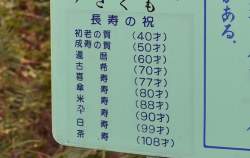 さくも
長寿の祝
初老の賀 (40才)
成寿の賀 (50才)
還暦 (60才)
古希 (70才)
喜寿 (77才)
傘寿 (80才)
米寿 (88才)
卆寿 (90才)
白寿 (99才)
茶寿 (108才)
がある.